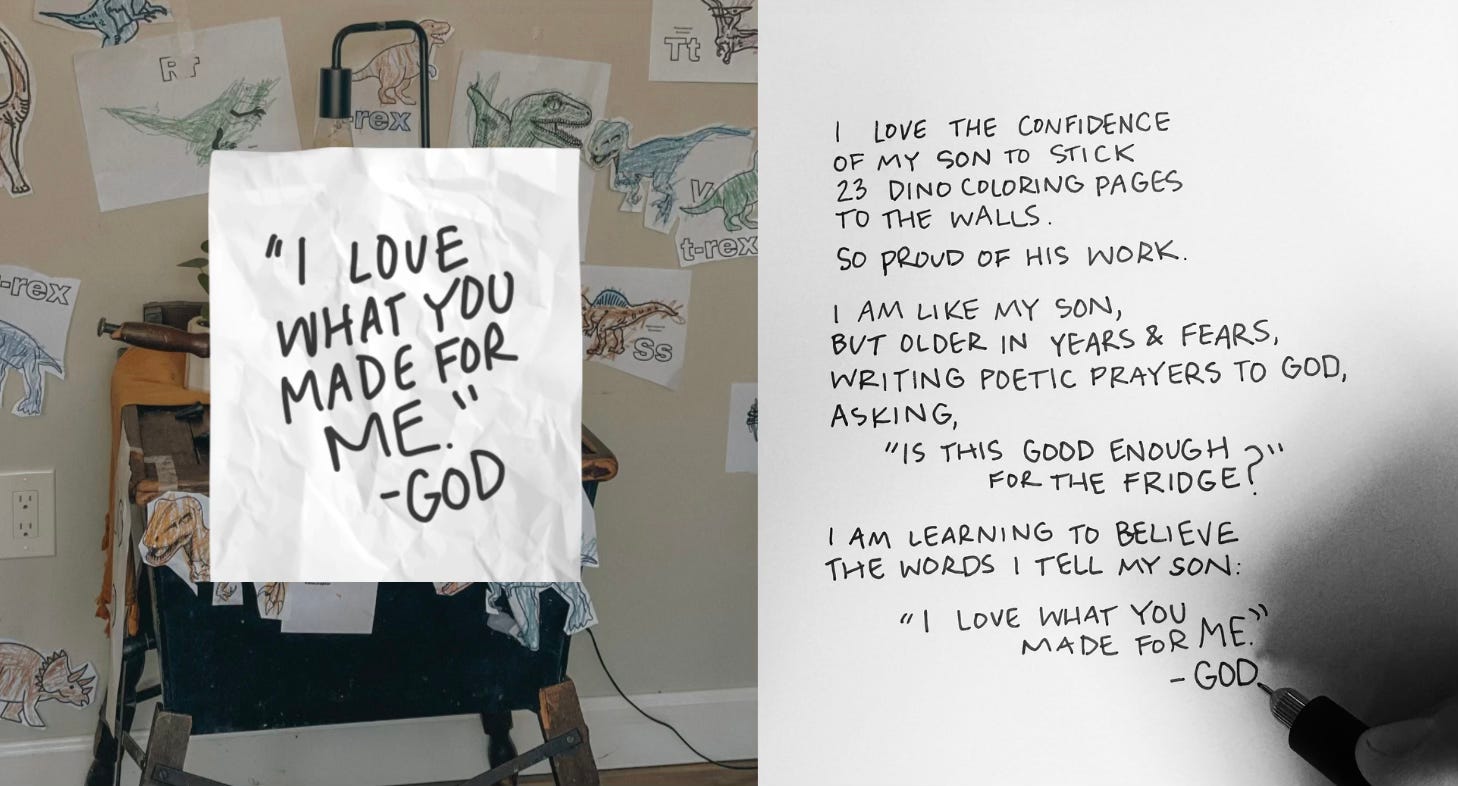 Rr
-rex
Tt
V
t-rex
-rex
Ss
"I LOVE
WHAT YOU
MADE FOR
ME."
-GOD
I LOVE THE CONFIDENCE
OF MY SON TO STICK
23 DINO COLORING PAGES
TO THE WALLS.
SO PROUD OF HIS WORK.
I AM LIKE MY SON,
BUT OLDER IN YEARS & FEARS,
WRITING POETIC PRAYERS TO GOD,
ASKING,
"IS THIS GOOD ENOUGH
FOR THE FRIDGE?"
I AM LEARNING TO BELIEVE
THE WORDS I TELL MY SON:
"I LOVE WHAT YOU
MADE FOR ME."
-GOD